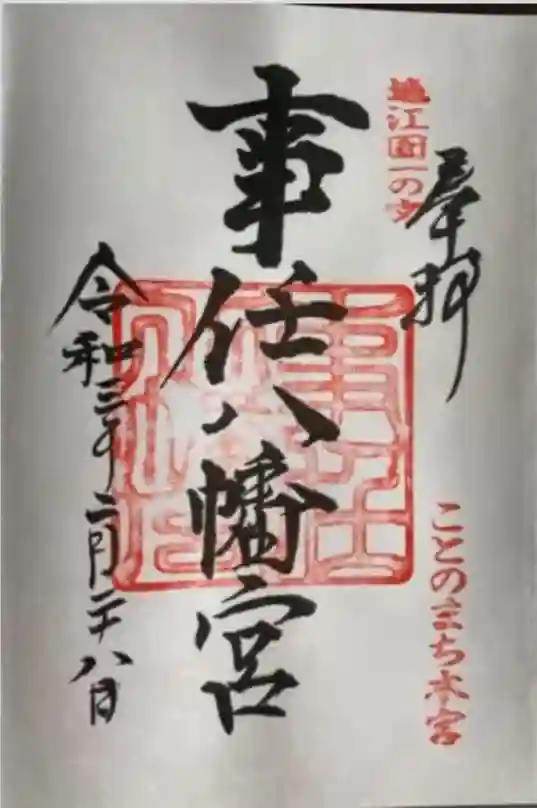 遠江国一の宮
奉拝
ことのまち本宮
事任八幡宮
令和三年二月二十八日